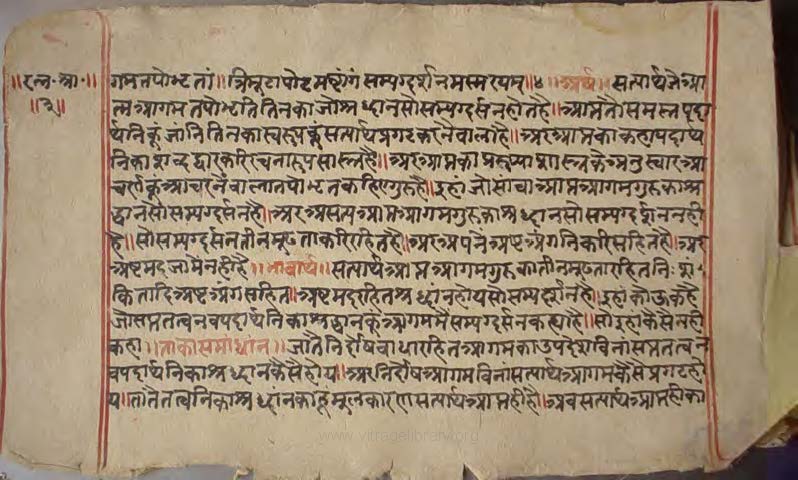 ॥रत्न॰ श्रा॰॥
॥३॥
गमतपोभृतां॥त्रिमूढापोढमष्टांगं सम्यग्दर्शनमस्मरयम्॥४॥अर्थ॥सत्यार्थजेआ
प्तआगमतपोभृततिनिकाजोश्रद्धानसोसम्यग्दर्सनहोतहै॥आप्ततौसमस्तपदा
र्थनिकूंजानितिनकास्वरूपकूंसत्यार्थप्रगटकरनेवालाहै॥अरआप्तकाकह्यापदार्थ
निकाशब्दद्वारकरिरचनारूपसास्त्रहै॥अरआप्तका प्ररूप्या शास्त्रकैअनुस्वारआ
चर्णकूंआचरनेवालातपोभृतकहिएगुरुहै॥इहांजोसांचाआप्तआगमगुरुकाश्र
द्धानसोसम्यग्दर्सनहै॥अरअसत्यआप्तआगमगुरुकाश्रद्धानसोसम्यग्दर्शननही
है॥सोसम्यग्दर्सनतीनमूढताकरिरहितहै॥अरअपनेअष्टअंगनिकरिसहितहै॥अर
अष्टमदजामेनहीहै॥भावार्थ॥सत्यार्थआप्तआगमगुरुकातीनमूढतारहितनिःशं
कितादिअष्टअंगसहित॥अष्टमदरहितश्रद्धानहोयसोसम्यग्दर्शनहै॥इहांकोऊकहै
जोसप्ततत्वनवपदार्थनिकाश्रद्धानकूंआगममैसम्यग्दर्सनकह्याहै॥सोइहांकैसैनही
कहा॥ताकासमाधान॥जातैनिर्दोषबाधारहितआगमकाउपदेशविनासप्ततत्वन
वपदार्थनिकाश्रद्धानकैसैहोय॥अरनिर्दोषआप्तविनासत्यार्थआगमकैसैप्रगटहो
य॥तातैतत्वनिकाश्रद्धानकाहूंमूलकारणसत्यार्थआप्तहीहै॥अबसत्यार्थआप्तहीका
www.vitragelibrary.org